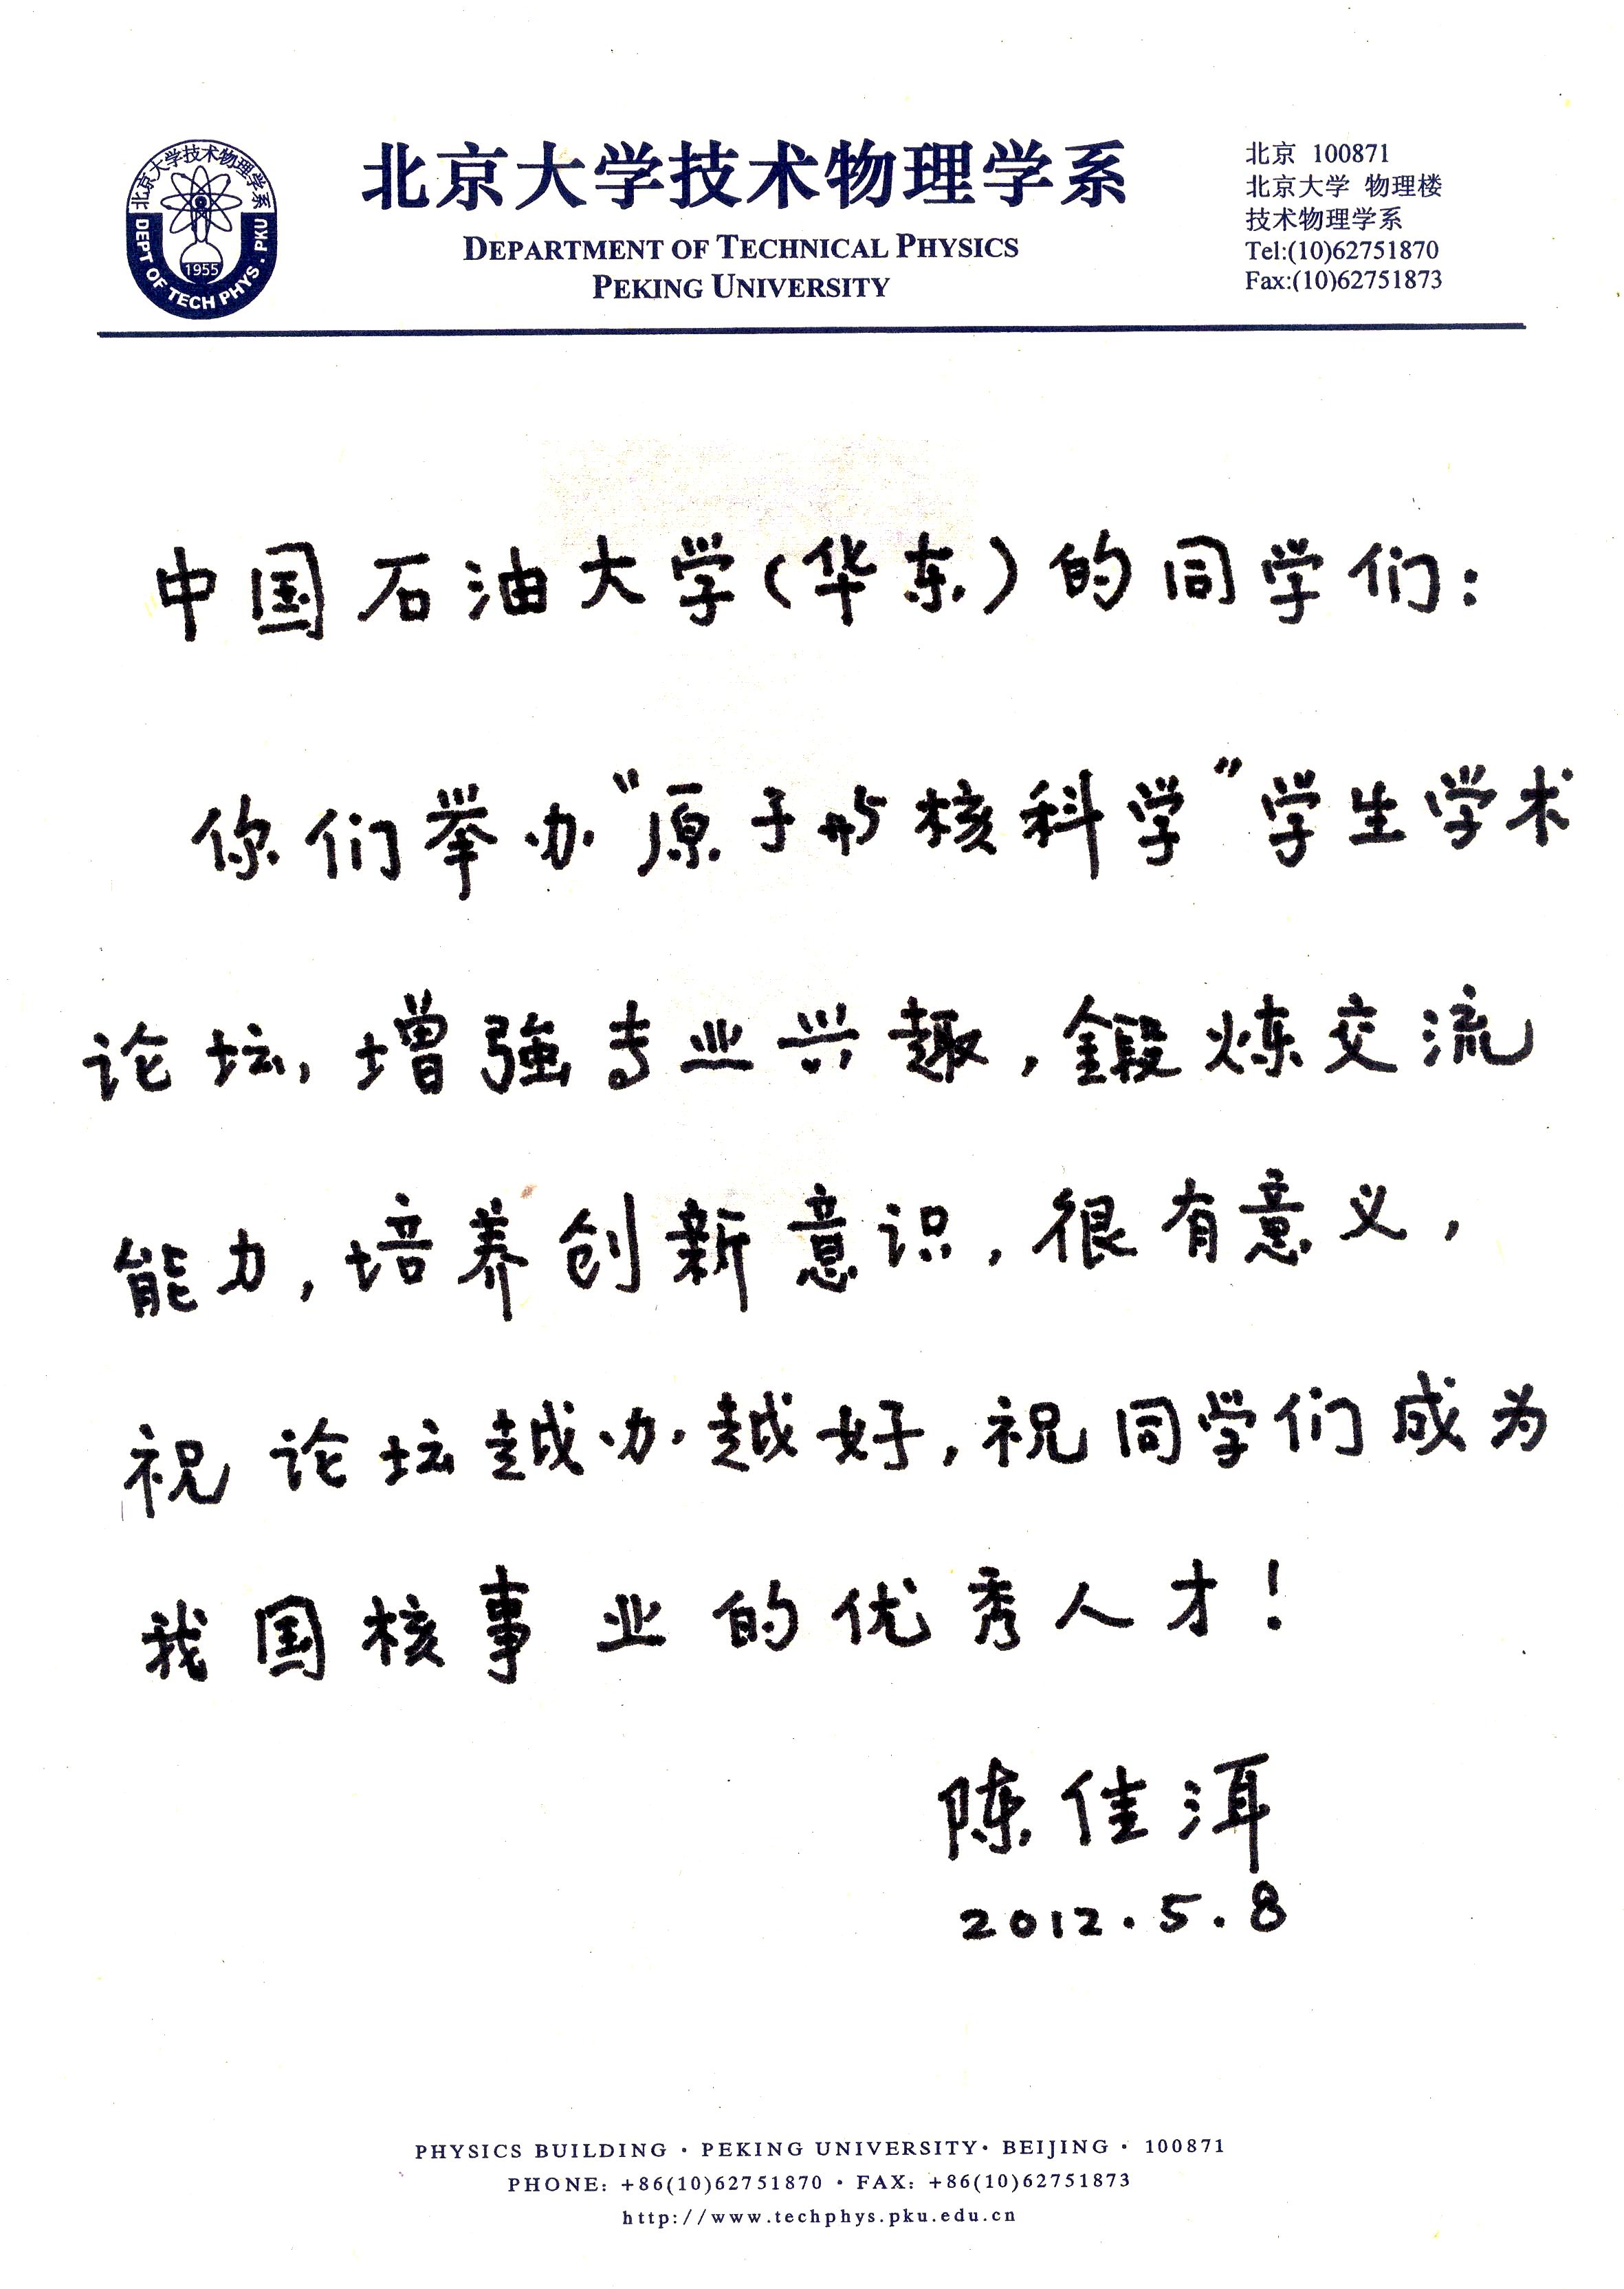 北京大学技术物理学系
DEPT OF TECH PHYS . PKU
1955
北京大学技术物理学系
DEPARTMENT OF TECHNICAL PHYSICS
PEKING UNIVERSITY
北京 100871
北京大学 物理楼
技术物理学系
Tel:(10)62751870
Fax:(10)62751873
中国石油大学(华东)的同学们:
你们举办"原子与核科学"学生学术
论坛,增强专业兴趣,鍛炼交流
能力,培养创新意识,很有意义,
祝论坛越办越好,祝同学们成为
我国核事业的优秀人才!
陈佳洱
2012.5.8
PHYSICS BUILDING · PEKING UNIVERSITY· BEIJING · 100871
PHONE: +86(10)62751870 · FAX: +86(10)62751873
http://www.techphys.pku.edu.cn